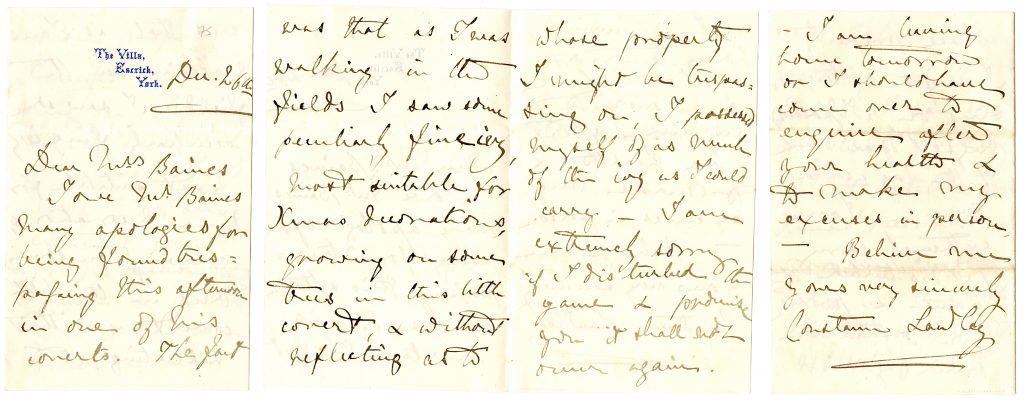 The Villa,
Escrick,
York.
Dec. 26th
Dear Mrs Baines
I owe Mr Baines
many apologies for
being found tres=
passing this afternoon
in one of his
coverts. The fact
was that as I was
walking in the
fields I saw some
peculiarly fine ivy,
most suitable for
Xmas decorations,
growing on some
trees in this little
covert, & without
reflecting as to
whose property
I might be trespas=
sing on, I possessed
myself of as much
of the ivy as I could
carry – I am
extremely sorry
if I disturbed the
game & promise
you it shall not
occur again.
– I am leaving
home tomorrow
or I should have
come over to
enquire after
your health &
to make my
excuses in person
– Believe me
yours very sincerely
Constance Lawley